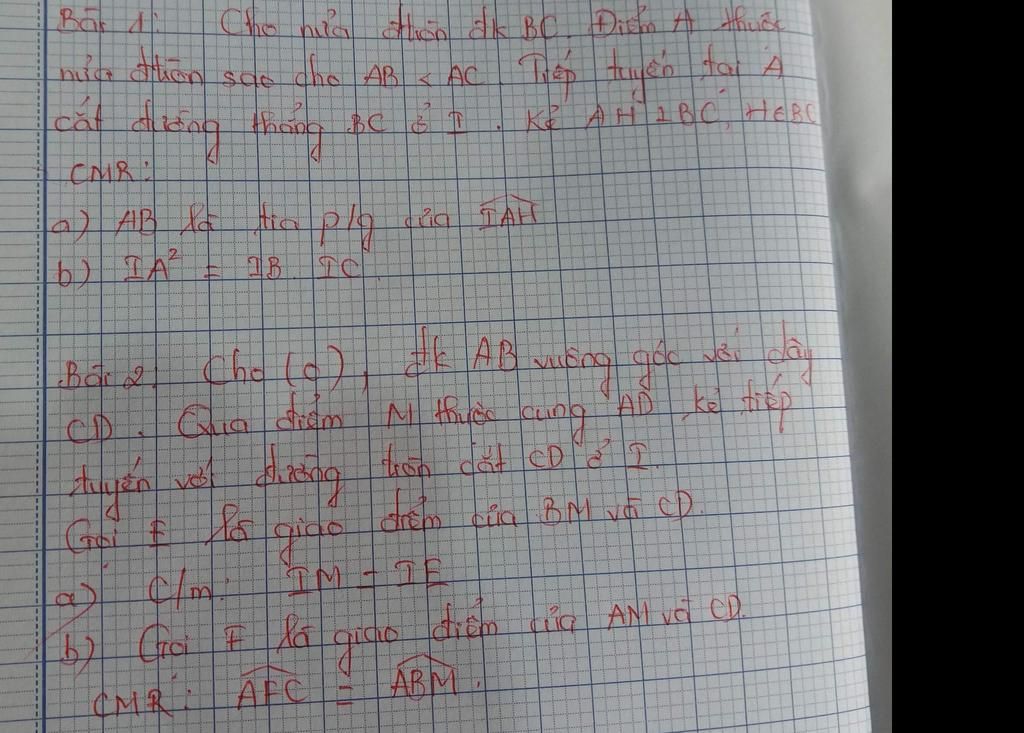 Bài 1: Cho nửa đtròn đk BC. Điểm A thuộc
nửa đtròn sao cho AB < AC Tiếp tuyến tại A
cắt đường thẳng BC ở I. Kẻ AH ⊥ BC, H∈BC
CMR:
a) AB là tia p/g của IAH
b) IA² = IB. IC
Bài 2. Cho (O), đk AB vuông góc với dây
CD. Qua điểm M thuộc cung AD kẻ tiếp
tuyến với đường tròn cắt CD ở I.
Gọi E là giao điểm của BM và CD.
a) C/m: IM = IE
b) Gọi F là giao điểm của AM và CD.
CMR: AFC = ABM.